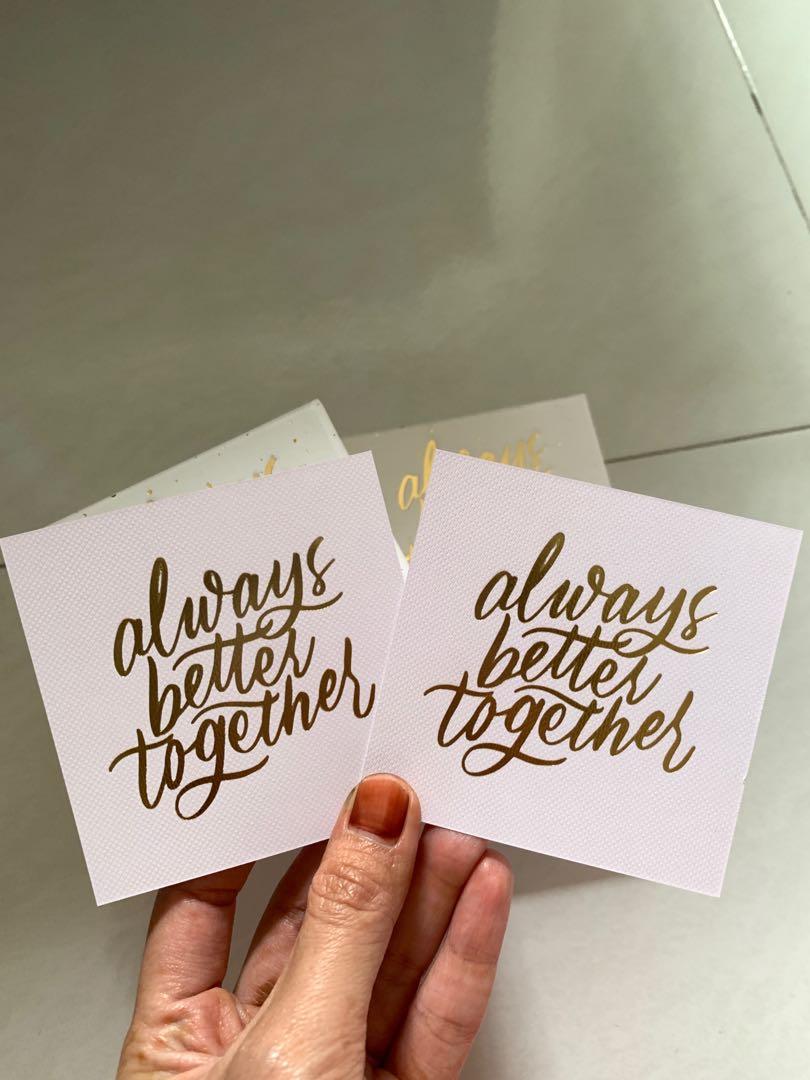 always
always
better
together
always
better
together